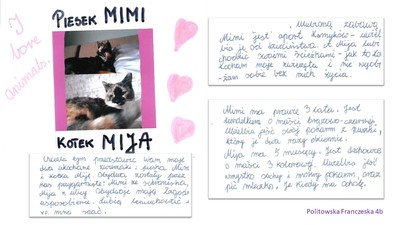 I love animals.
PIESEK MIMI
KOTEK MIJA
Chciała bym przedstawić Wam moje
dwa ukochane zwierzaki: pieska Mimi
i kotka Miję. Obydwa zostały przez
nas przygarnięte: Mimi ze schroniska,
Mija z ulicy. Obydwoje mają łagodne
usposobienie. Lubią leniuchować i
ze mną spać.
Ulubioną zabawą
Mimi jest aport
bia je od szczeniństwa. A Mija lubi
chodzić swoimi ścieżkami - jak to kot.
Kocham moje zwierzęta i nie wyobr-
ażam sobie bez nich życia.
Mimi ma prawie 3 lata. Jest
kundelkiem o maści brązowo-czarnej.
Uwielbia jeść swój pokarm z puszki,
który je dwa razy dziennie.
Mija ma 5 miesięcy. Jest dachowcem
o maści 3 kolorowej. Uwielbia jeść
wszystko suchy i mokry pokarm, oraz
pić mleczko. Je kiedy ma ochotę.
Politowska Franczeska 4b